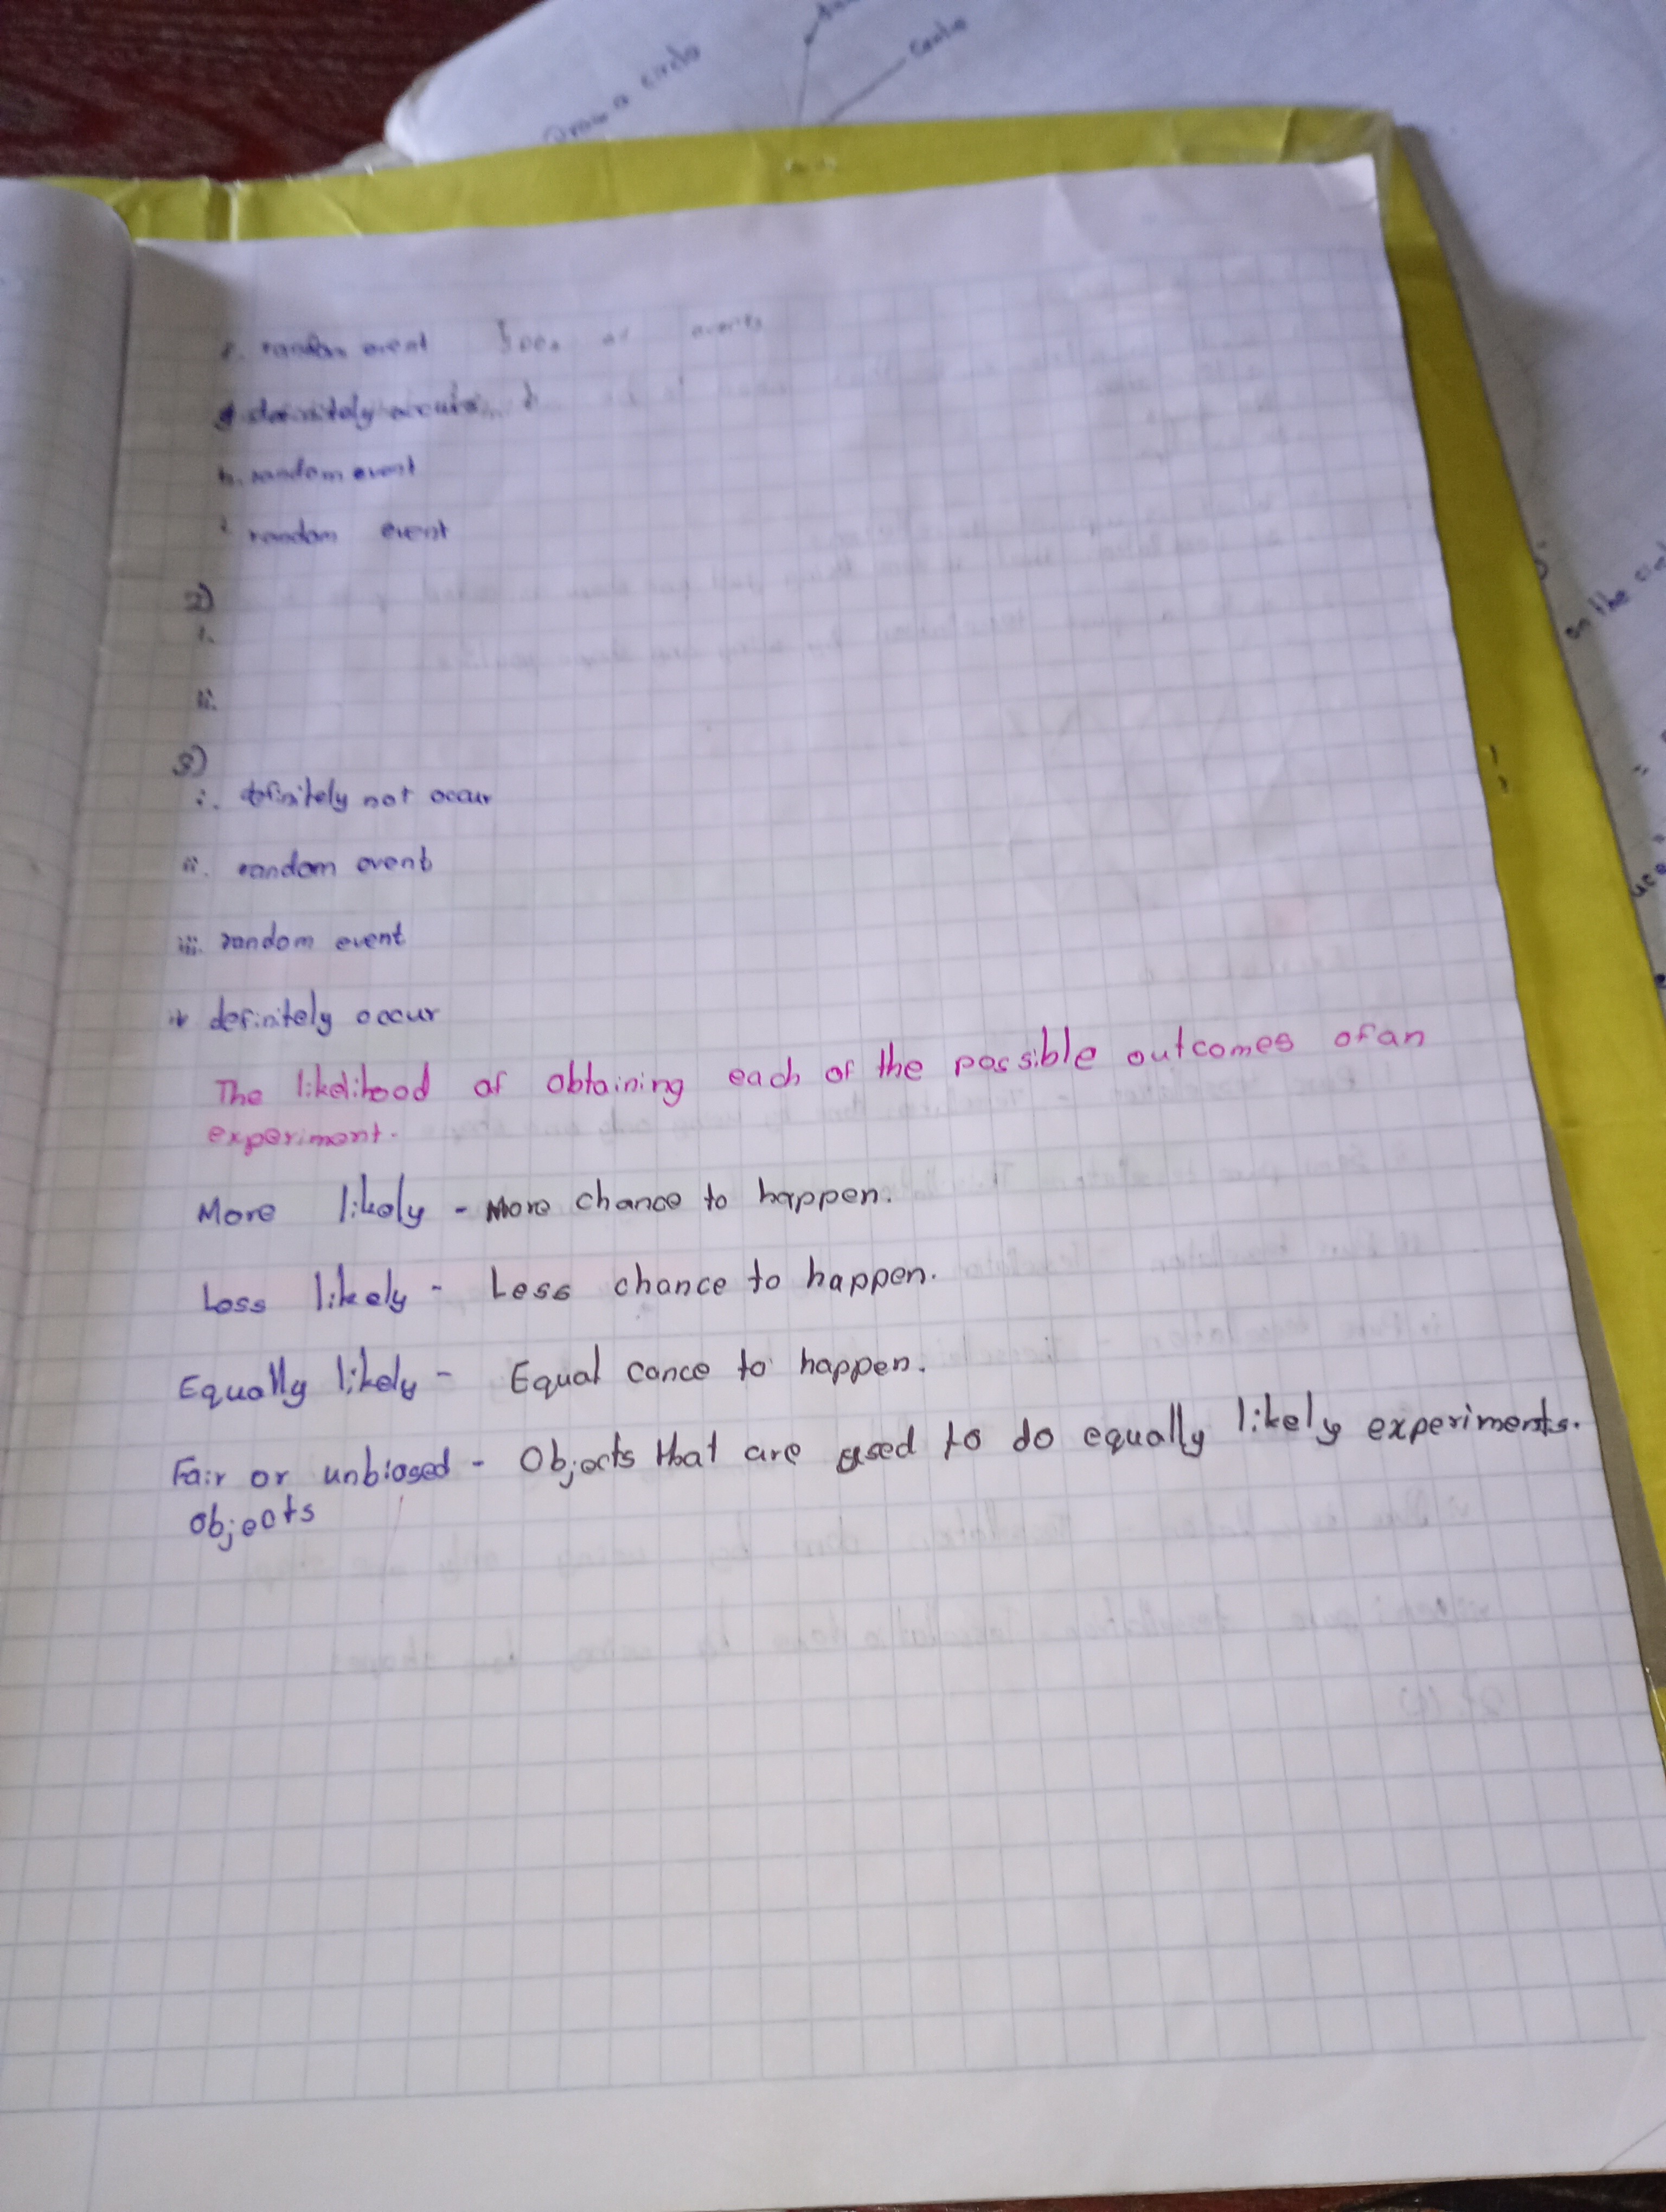 Draw a circle
Centre
f. random event
g. definitely
h. random event
i random event
2)
i.
ii.
3)
i. definitely not occur
ii. random event
iii. random event
iv definitely occur
The likelihood of obtaining each of the possible outcomes of an
experiment.
More likely - More chance to happen.
Less likely - Less chance to happen.
Equally likely - Equal cance to happen.
Fair or unbiased - Objects that are used to do equally likely experiments.
objects
on the